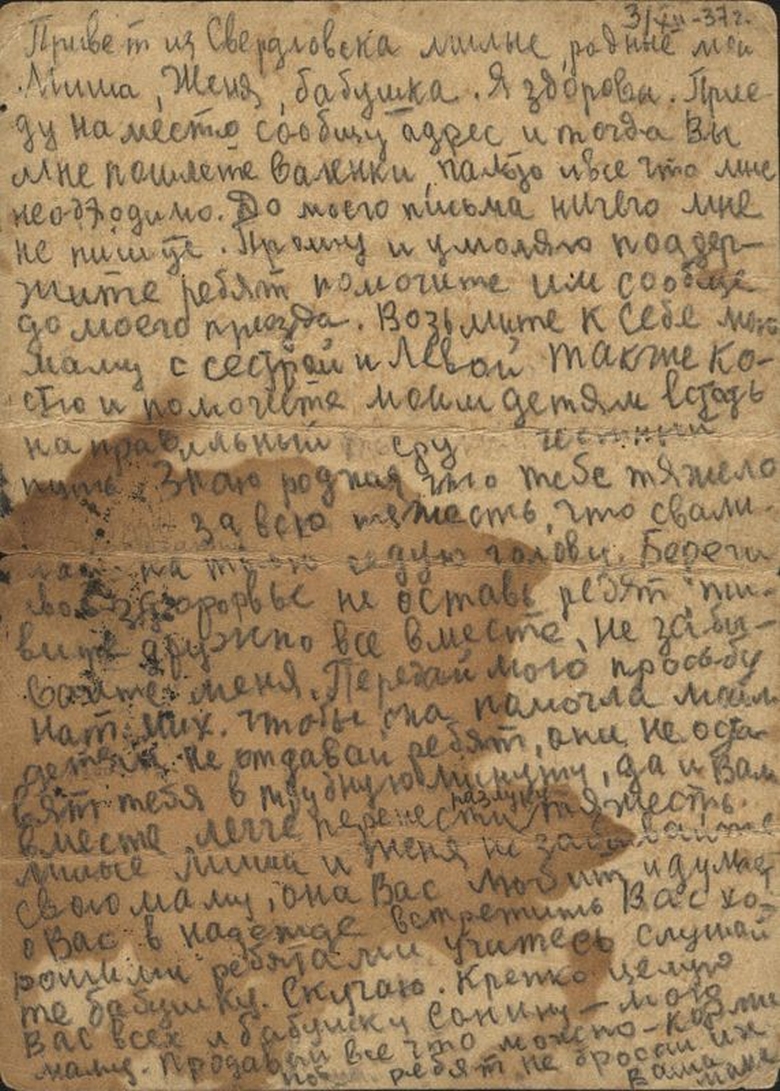 3/XII-37г.
Привет из Свердловска милые, родные мои
Миша, Женя, бабушка. Я здорова. Прие-
ду на место сообщу адрес и тогда Вы
мне пошлете валенки, пальто и все что мне
необходимо. До моего письма ничего мне
не пишите. Прошу и умоляю поддер-
жите ребят помогите им сообще
до моего приезда. Возьмите к себе мою
маму с сестрой и Левой также Ко-
стю и помогите моим детям встать
на правильный
путь. Знаю родная что тебе тяжело
за всю тяжесть, что свали-
лась на твою седую голову. Береги
свое здоровье не оставь ребят, жи-
вите дружно все вместе, не забы-
вайте меня. Передай мою просьбу
Нат. Мих. чтобы она помогла моим
детям не отдавай ребят, они не оста-
вят тебя в трудную минуту, да и Вам
вместе легче перенести разлуку тяжесть.
Милые Миша и Женя не забывайте
свою маму, она Вас любит и думает
о Вас в надежде встретить Вас хо-
рошими ребятами учитесь слушай-
те бабушку. Скучаю. Крепко целую
Вас всех и бабушку Сонину - мою
маму. Продавай все что можно - корми
ребят не бросай их
Ваша мама